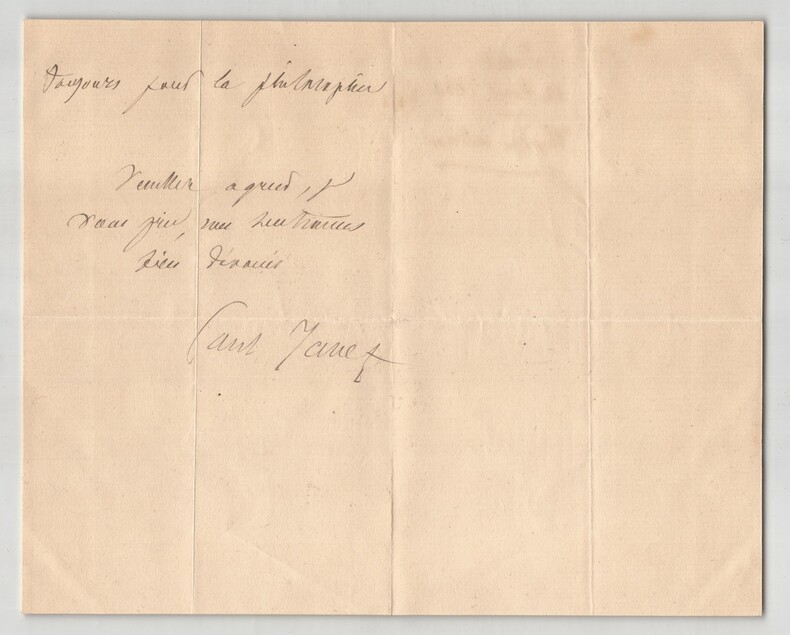 toujours pour la philosophie
Veuillez agréer, je
vous prie, mes sentiments
bien dévoués
Paul Janet